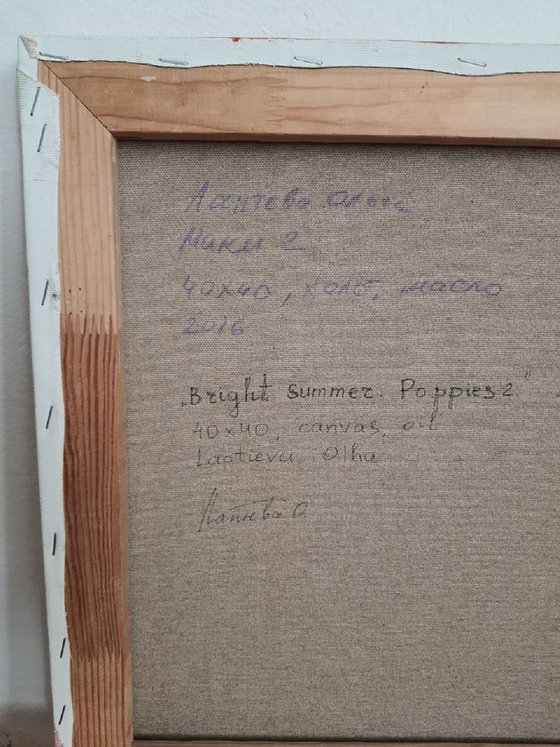 Лаптева Ольга
Маки 2
40х40, холст, масло
2016
„Bright Summer. Poppies 2."
40x40, canvas, oil
Laptieva Olha
Лаптева О